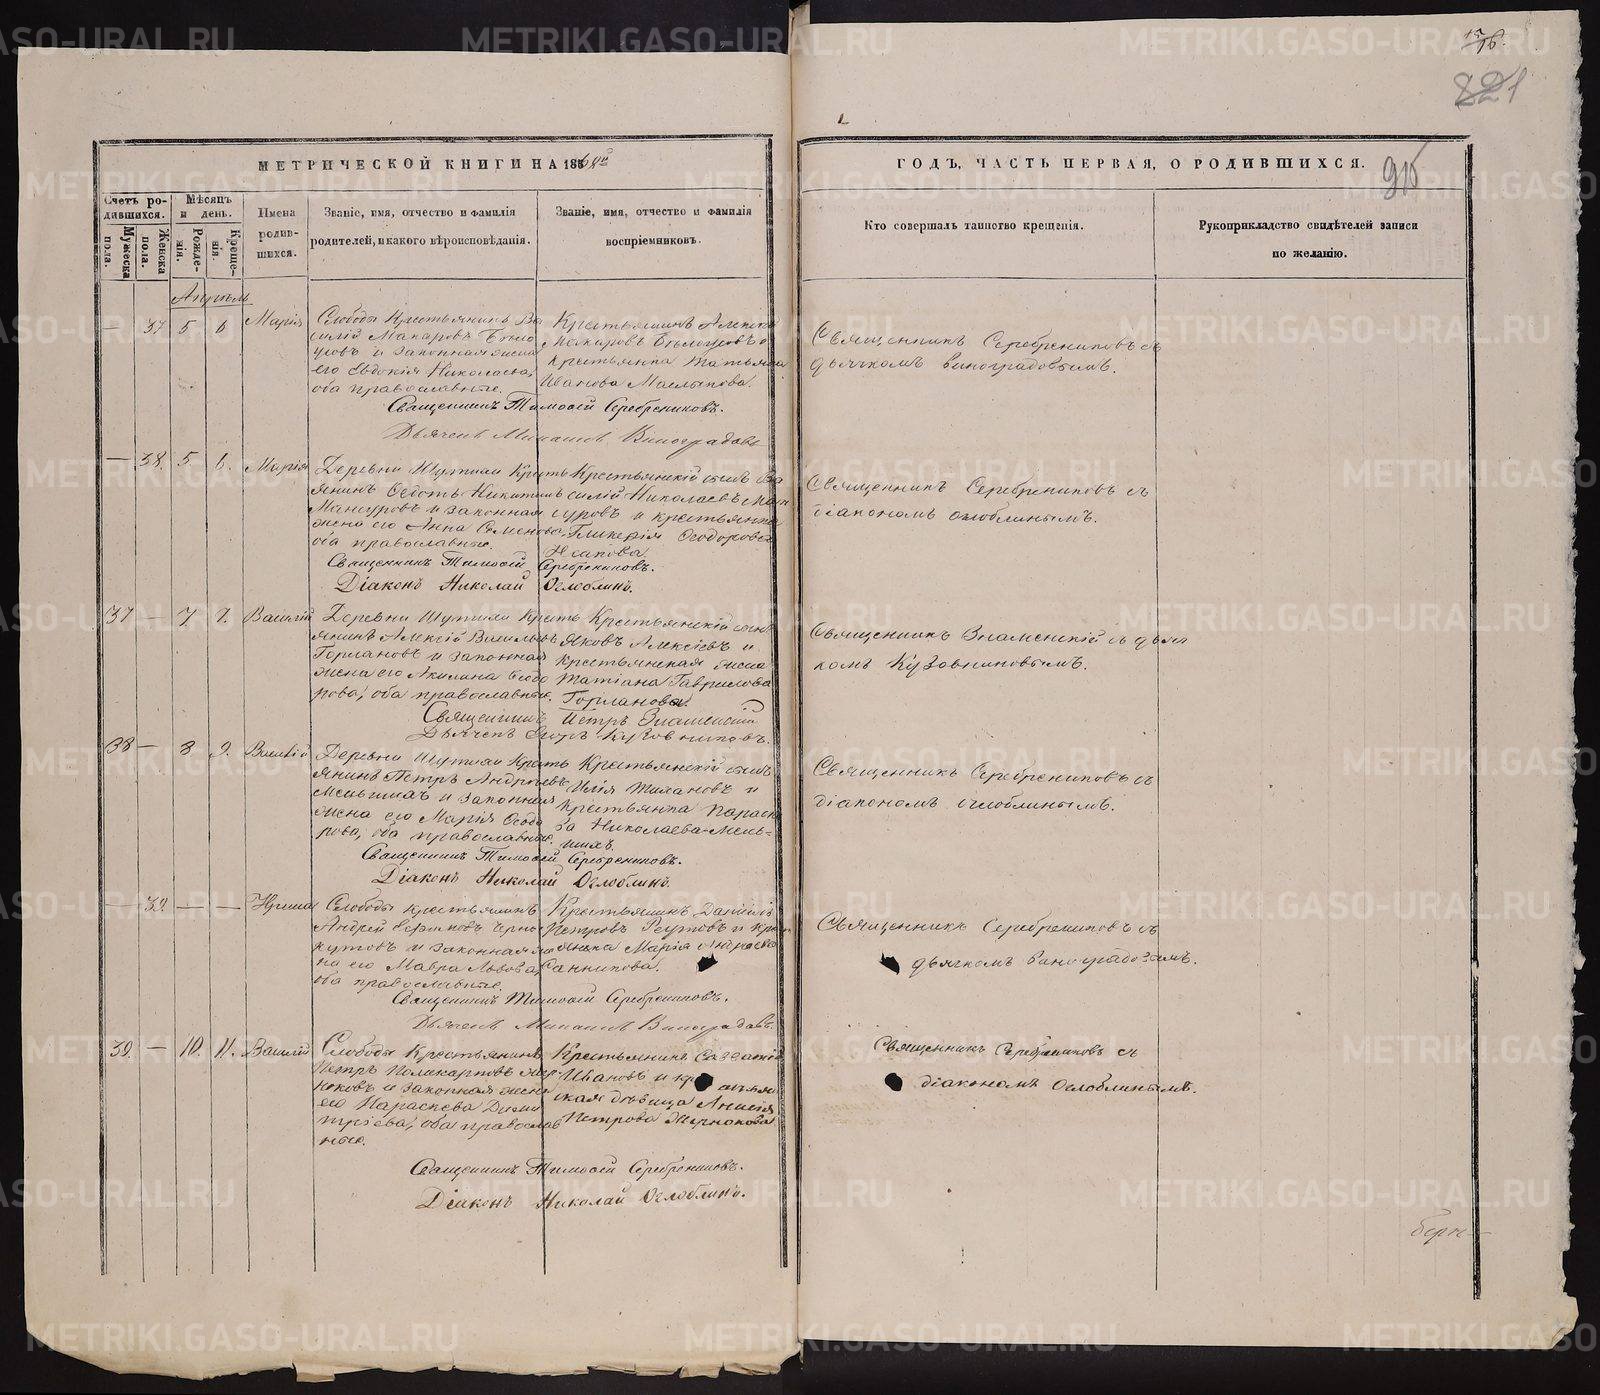 МЕТРИЧЕСКОЙ КНИГИ НА 186
Счетъ родившихся.
Мужеска пола.
Женска пола.
Мѣсяцъ и день.
Рожденія.
Крещенія.
Имена родившихся.
Званіе, имя, отчество и фамилія родителей, и какого вѣроисповѣданія.
Званіе, имя, отчество и фамилія воспріемниковъ.
Апрѣль
— 37 5 6 Марія
Слободы Крестьянинъ Ва
силій Макаровъ Бѣло
усовъ и законная жена
его Евдокія Николаева,
оба православные.
Крестьянинъ Алексѣй
Макаровъ Бѣлоусовъ и
крестьянка Татьяна
Иванова
Священникъ Тимоѳей Серебрениковъ.
Дьячекъ Виноградовъ
— 38. 5 6. Марія
Деревни Шутихи Кресть
янинъ Ѳедотъ Никитинъ
Мансуровъ и законная
жена его Анна Семенова,
оба православные.
Крестьянскій сынъ Ва
силій Николаевъ Ман
суровъ и крестьянка
Гликерія Ѳеодорова
Священникъ Тимоѳей Серебрениковъ.
Діаконъ Николай Оглоблинъ.
37 — 7 7. Василій
Деревни Шутихи Кресть
янинъ Алексѣй Васильевъ
Горлановъ и законная
жена его Акилина Ѳеодо
рова, оба православные.
Крестьянскій сынъ
Яковъ Алексѣевъ и
крестьянская жена
Татіана Гаврилова
Горланова.
Священникъ Петръ Знаменскій
Дьячекъ Кузовниковъ.
38 — 8 9. Василій
Деревни Шутихи Кресть
янинъ Петръ Андреевъ
Меньшихъ и законная
жена его Марія Ѳеодо
рова, оба православные.
Крестьянскій сынъ
Илія Тихановъ и
крестьянка Параске
ва Николаева Мень-
шихъ.
Священникъ Тимоѳей Серебрениковъ.
Діаконъ Николай Оглоблинъ.
— 39. — —
Слободы крестьянинъ
Андрей
и законная же
на его Мавра Львова,
оба православные.
Крестьянинъ Даніилъ
Петровъ Реутовъ и кре
янка Марія Андреева
Санникова.
Священникъ Тимоѳей Серебрениковъ.
Дьячекъ Виноградовъ.
39. — 10. 11. Василій
Слободы Крестьянинъ
Петръ Поликарповъ
и законная жена
его Параскева Дими
тріева, оба православ
ные.
Крестьянинъ Савватій
Ивановъ и
ская дѣвица Анисія
Петрова
Священникъ Тимоѳей Серебрениковъ.
Діаконъ Николай Оглоблинъ.
16.
821
ГОДЪ, ЧАСТЬ ПЕРВАЯ, О РОДИВШИХСЯ.
Кто совершалъ таинство крещенія.
Рукоприкладство свидѣтелей записи
по желанію.
Священникъ Серебрениковъ съ
дьячкомъ Виноградовымъ.
Священникъ Серебрениковъ съ
діакономъ Оглоблинымъ.
Священникъ Знаменскій съ дьяч
комъ Кузовниковымъ.
Священникъ Серебрениковъ съ
діакономъ Оглоблинымъ.
Священникъ Серебрениковъ съ
дьячкомъ Виноградовымъ.
Священникъ Серебрениковъ съ
діакономъ Оглоблинымъ.
METRIKI.GASO-URAL.RU